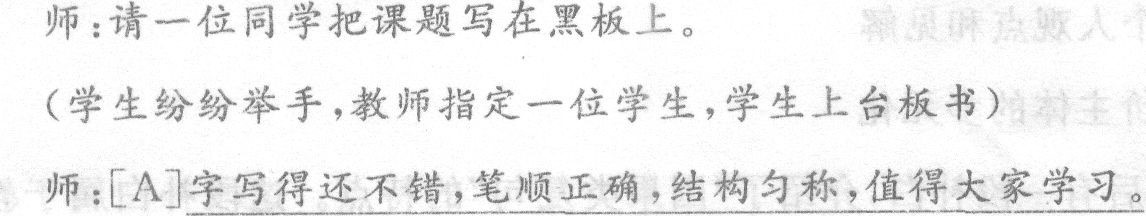 师:请一位同学把课题写在黑板上。
(学生纷纷举手,教师指定一位学生,学生上台板书)
师:[A]字写得还不错,笔顺正确,结构匀称,值得大家学习。